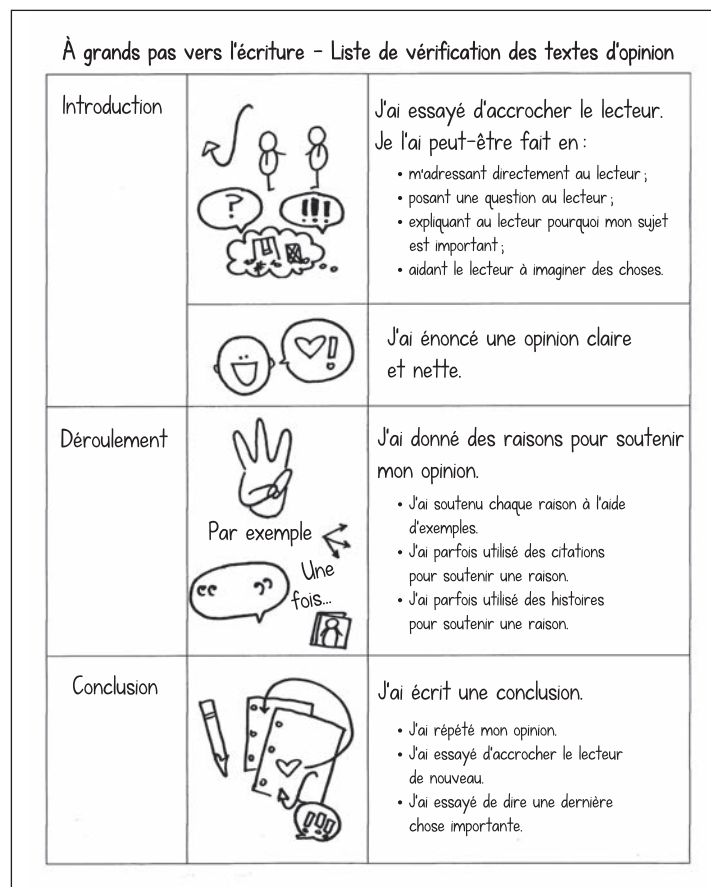 À grands pas vers l'écriture – Liste de vérification des textes d'opinion
Introduction
J'ai essayé d'accrocher le lecteur.
Je l'ai peut-être fait en :
• m'adressant directement au lecteur ;
• posant une question au lecteur ;
• expliquant au lecteur pourquoi mon sujet
est important ;
• aidant le lecteur à imaginer des choses.
?
!!!
J'ai énoncé une opinion claire
et nette.
!
Déroulement
Par exemple
Une
fois...
J'ai donné des raisons pour soutenir
mon opinion.
• J'ai soutenu chaque raison à l'aide
d'exemples.
• J'ai parfois utilisé des citations
pour soutenir une raison.
• J'ai parfois utilisé des histoires
pour soutenir une raison.
Conclusion
!!!
J'ai écrit une conclusion.
• J'ai répété mon opinion.
• J'ai essayé d'accrocher le lecteur
de nouveau.
• J'ai essayé de dire une dernière
chose importante.